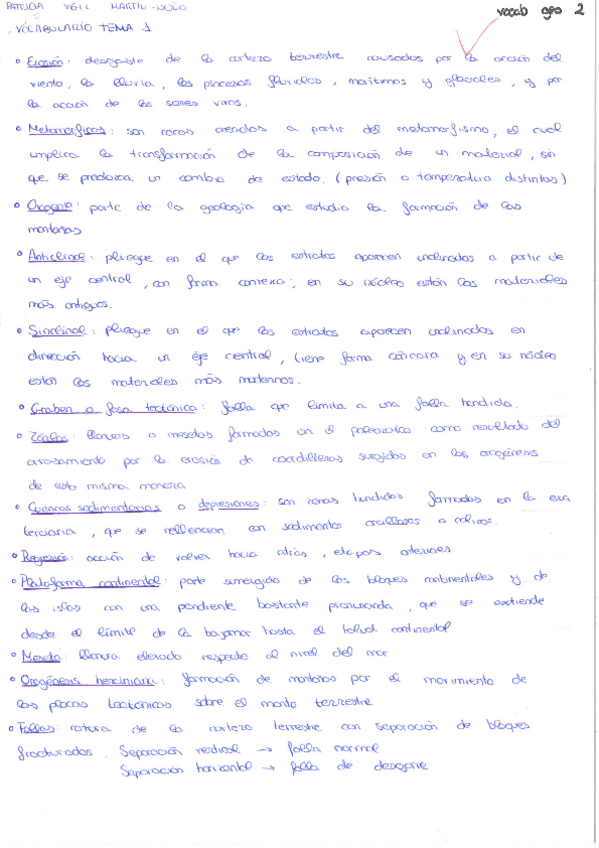 PATRICIA VIGIL MARTIN-
vocab geo 2
VOCABULARIO TEMA 1
• Erosión: desgaste de la corteza terrestre causados por la acción del
viento, la lluvia, los procesos fluviales, marítimos y glaciales, y por
la acción de los seres vivos.
• Metamorficas: son rocas creadas a partir del metamorfismo, el cual
implica la transformación de la composición de un material, sin
que se produzca un cambio de estado. (presión o temperatura distintas)
• Orogenia: parte de la geología que estudia la formación de las
montañas
• Anticlinal: pliegue en el que los estratos aparecen inclinados a partir de
un eje central, con forma convexa; en su núcleo están los materiales
más antiguos.
• Sinclinal: pliegue en el que los estratos aparecen inclinados en
dirección hacia un eje central, tiene forma cóncava y en su núcleo
están los materiales más modernos.
• Graben o fosa tectónica: falla que limita a una falla hundida.
• Zócalos: llanuras o mesetas formadas en el paleozoico como resultado del
arrasamiento por la erosión de cordilleras surgidas en las orogénesis
de esta misma manera
• Cuencas sedimentarias o depresiones: son zonas hundidas formadas en la era
terciaria, que se rellenaron con sedimentos arcillosos o calizos.
• Regresión: acción de volver hacia atrás, etapas anteriores
• Plataforma continental: parte sumergida de los bloques continentales y de
las islas con una pendiente bastante pronunciada, que se extiende
desde el límite de la bajamar hasta el talud continental
• Meseta: llanura elevada respecto al nivel del mar
• Orogénesis herciniana: formación de montañas por el movimiento de
las placas tectónicas sobre el manto terrestre
• Fallas: rotura de la corteza terrestre con separación de bloques
fracturados. Separación vertical → falla normal
Separación horizontal → falla de desgarre